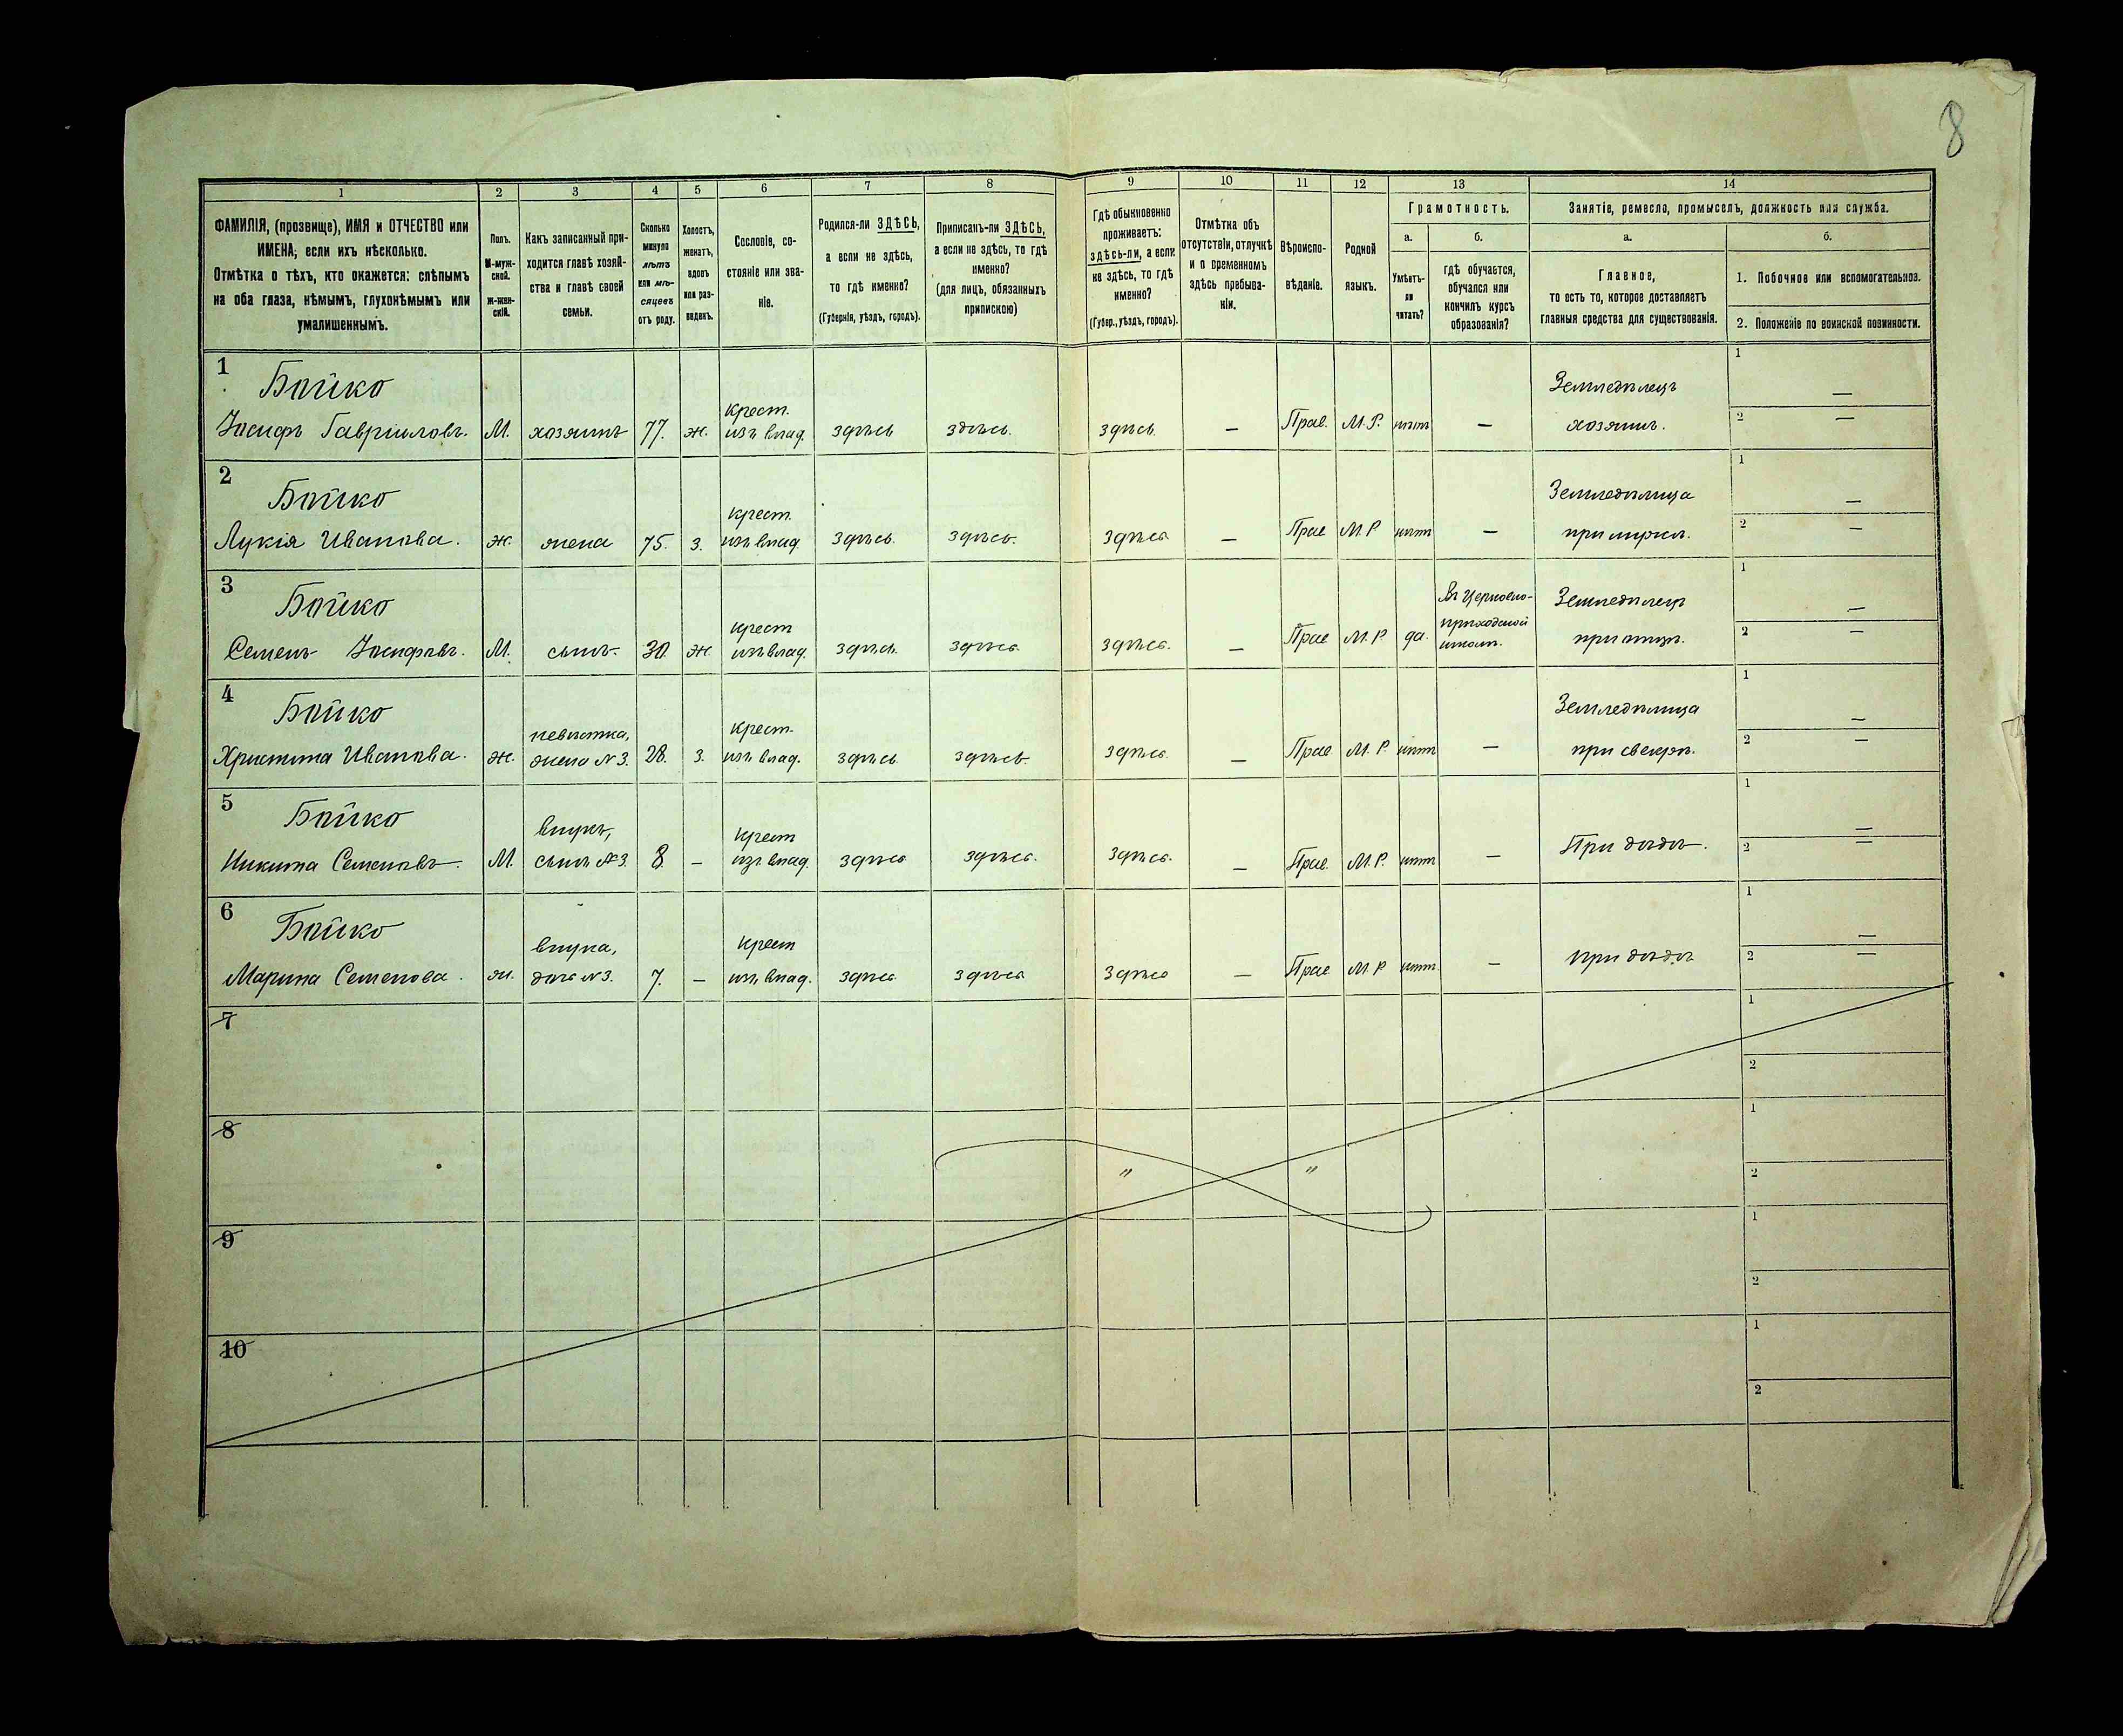 8
1 2 3 4 5 6 7 8 9 10 11 12 13 14
ФАМИЛІЯ, (прозвище), ИМЯ и ОТЧЕСТВО или
ИМЕНА, если ихъ нѣсколько.
Отмѣтка о тѣхъ, кто окажется: слѣпымъ
на оба глаза, нѣмымъ, глухонѣмымъ или
умалишеннымъ.
Полъ.
М-муж-
ской.
Ж-жен-
скій.
Какъ записанный при-
ходится главѣ хозяй-
ства и главѣ своей
семьи.
Сколько
минуло
лѣтъ
или мѣ-
сяцевъ
отъ роду.
Холостъ,
женатъ,
вдовъ
или раз-
веденъ.
Сословіе, со-
стояніе или зва-
ніе.
Родился-ли ЗДѢСЬ,
а если не здѣсь,
то гдѣ именно?
(Губернія, уѣздъ, городъ).
Приписанъ-ли ЗДѢСЬ,
а если не здѣсь, то гдѣ
именно?
(для лицъ, обязанныхъ
припискою)
Гдѣ обыкновенно
проживаетъ:
здѣсь-ли, а если
не здѣсь, то гдѣ
именно?
(Губер., уѣздъ, городъ).
Отмѣтка объ
отсутствіи, отлучкѣ
и о временномъ
здѣсь пребыва-
ніи.
Вѣроиспо-
вѣданіе.
Родной
языкъ.
Грамотность.
а.
Умѣетъ-
ли
читать?
б.
гдѣ обучается,
обучался или
кончилъ курсъ
образованія?
Занятіе, ремесло, промыселъ, должность или служба.
а.
Главное,
то есть то, которое доставляетъ
главныя средства для существованія.
б.
1. Побочное или вспомогательное.
2. Положеніе по воинской повинности.
1
Бойко
Іосифъ Гавриловъ.
М.
хозяинъ
77.
ж.
Крест.
изъ влад.
здѣсь
здѣсь.
здѣсь.
—
Прав.
М.Р.
нѣтъ
—
Земледѣлецъ
хозяинъ.
1 —
2 —
2
Бойко
Лукія Иванова.
ж.
жена
75.
з.
Крест.
изъ влад.
здѣсь.
здѣсь.
здѣсь
—
Прав
М.Р
нѣтъ
—
Земледѣлица
при мужѣ.
1 —
2 —
3
Бойко
Семенъ Іосифовъ.
М.
сынъ.
30.
ж.
Крест
изъ влад.
здѣсь.
здѣсь.
здѣсь.
—
Прав
М.Р
да.
Въ Церковно-
приходской
школѣ.
Земледѣлецъ
при отцѣ.
1 —
2 —
4
Бойко
Христина Иванова.
ж.
невѣстка,
жена №3.
28.
з.
Крест.
изъ влад.
здѣсь.
здѣсь.
здѣсь.
—
Прав
М.Р
нѣтъ
—
Земледѣлица
при свекрѣ.
1 —
2 —
5
Бойко
Никита Семеновъ.
М.
внукъ,
сынъ №3.
8.
—
Крест
изъ влад.
здѣсь
здѣсь.
здѣсь.
—
Прав.
М.Р.
нѣтъ
—
При дѣдѣ.
1 —
2 —
6
Бойко
Марина Семенова.
ж.
внука,
дочь №3.
7.
—
Крест
изъ влад.
здѣсь
здѣсь
здѣсь
—
Прав
М.Р
нѣтъ
—
при дѣдѣ
1 —
2 —
7
1
2
8
1
" "
2
9
1
2
10
1
2